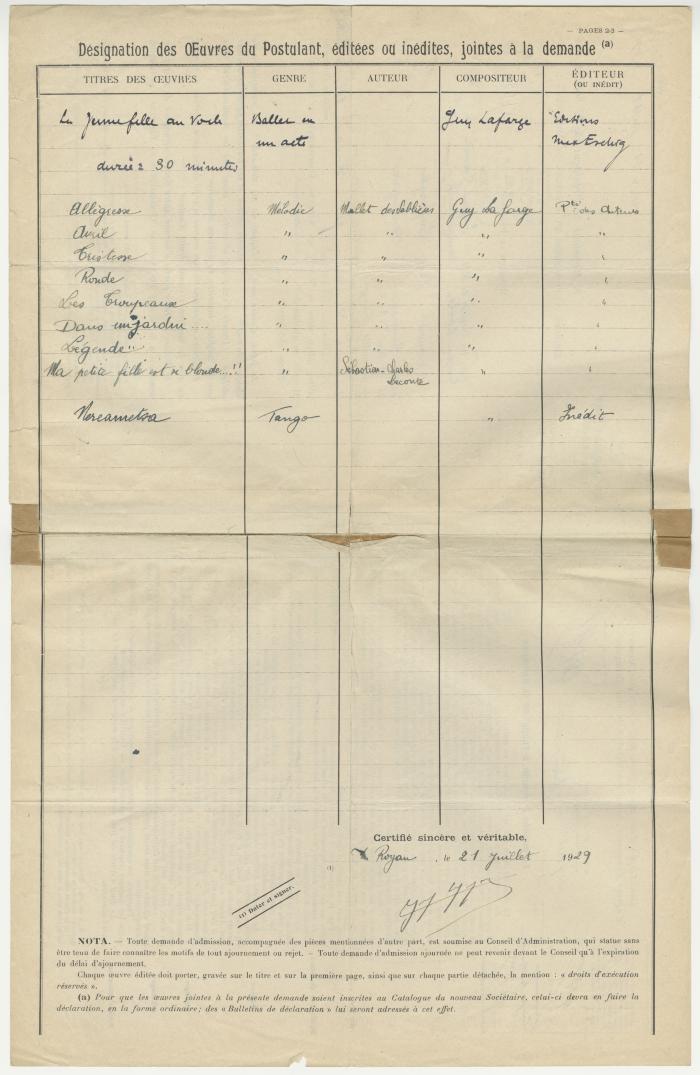 — PAGES 2-3 —
Désignation des Œuvres du Postulant, éditées ou inédites, jointes à la demande (a)
TITRES DES ŒUVRES GENRE AUTEUR COMPOSITEUR ÉDITEUR
(OU INÉDIT)
La Jeune fille au Voile Ballet en Guy Lafarge Editions
un acte Max Eschig
durée : 30 minutes
Allégresse Mélodie Mallet des Sablières Guy Lafarge Pté des Auteurs
Avril " " " "
Tristesse " " " "
Ronde " " " "
Les Troupeaux " " " "
Dans un jardin.... " " " "
Légende " " " "
Ma petite fille est si blonde...!! " Sébastien-Charles " "
Lecomte
Tango " Inédit
Certifié sincère et véritable,
Royan, le 21 Juillet 1929
(1)
(1) Dater et signer.
NOTA. — Toute demande d'admission, accompagnée des pièces mentionnées d'autre part, est soumise au Conseil d'Administration, qui statue sans
être tenu de faire connaître les motifs de tout ajournement ou rejet. — Toute demande d'admission ajournée ne peut revenir devant le Conseil qu'à l'expiration
du délai d'ajournement.
Chaque œuvre éditée doit porter, gravée sur le titre et sur la première page, ainsi que sur chaque partie détachée, la mention : « droits d'exécution
réservés ».
(a) Pour que les œuvres jointes à la présente demande soient inscrites au Catalogue du nouveau Sociétaire, celui-ci devra en faire la
déclaration, en la forme ordinaire; des « Bulletins de déclaration » lui seront adressés à cet effet.